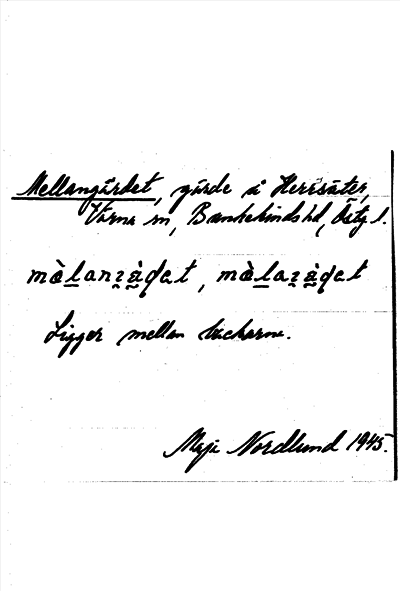 Mellangärdet, gärde å Herrsäter,
Värna sn, Bankekinds hd, Östg l.
màlanʒàḍet, màlaʒàḍet
Ligger mellan backarna.
Maja Nordlund 1945.